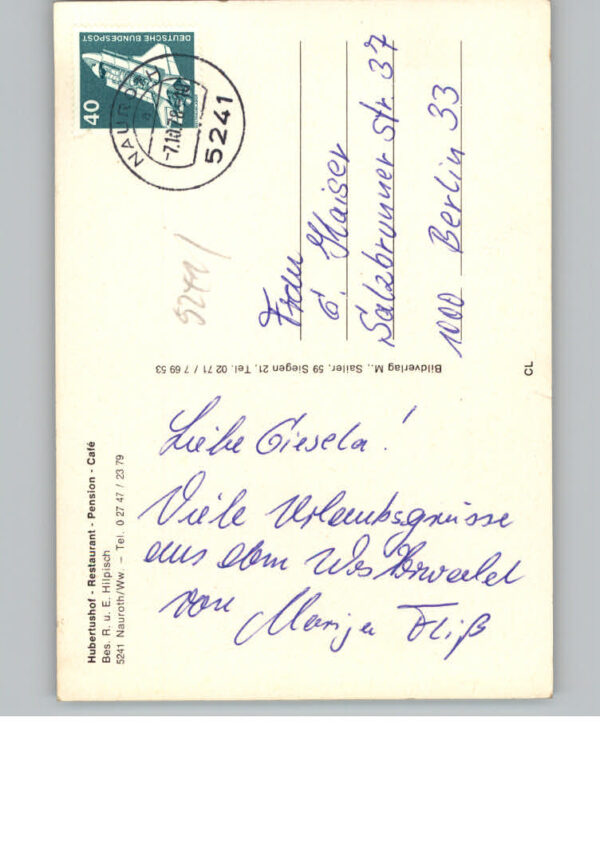 40
DEUTSCHE BUNDESPOST
NAUROTH
-7.10.78-10
5241
5241
Frau
G. Kaiser
Salzbrunner Str. 37
1000 Berlin 33
Bildverlag M., Sailer, 59 Siegen 21, Tel. 02 71 / 7 69 53
CL
Hubertushof - Restaurant - Pension - Café
Bes. R. u. E. Hilpisch
5241 Nauroth/Ww. – Tel. 0 27 47 / 23 79
Liebe Giesela!
Viele Urlaubsgrüsse
aus dem Westerwald
von